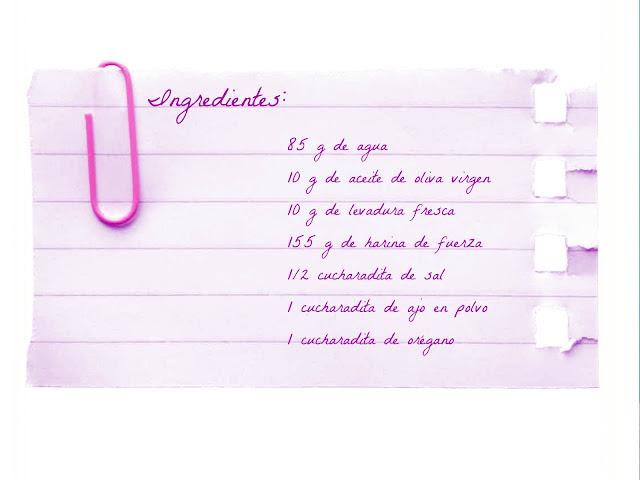 Ingredientes:
85 g de agua
10 g de aceite de oliva virgen
10 g de levadura fresca
155 g de harina de fuerza
1/2 cucharadita de sal
1 cucharadita de ajo en polvo
1 cucharadita de orégano